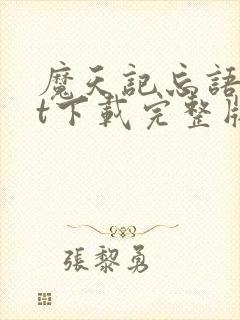 魔天記忘語
t下載完整版
張黎勇